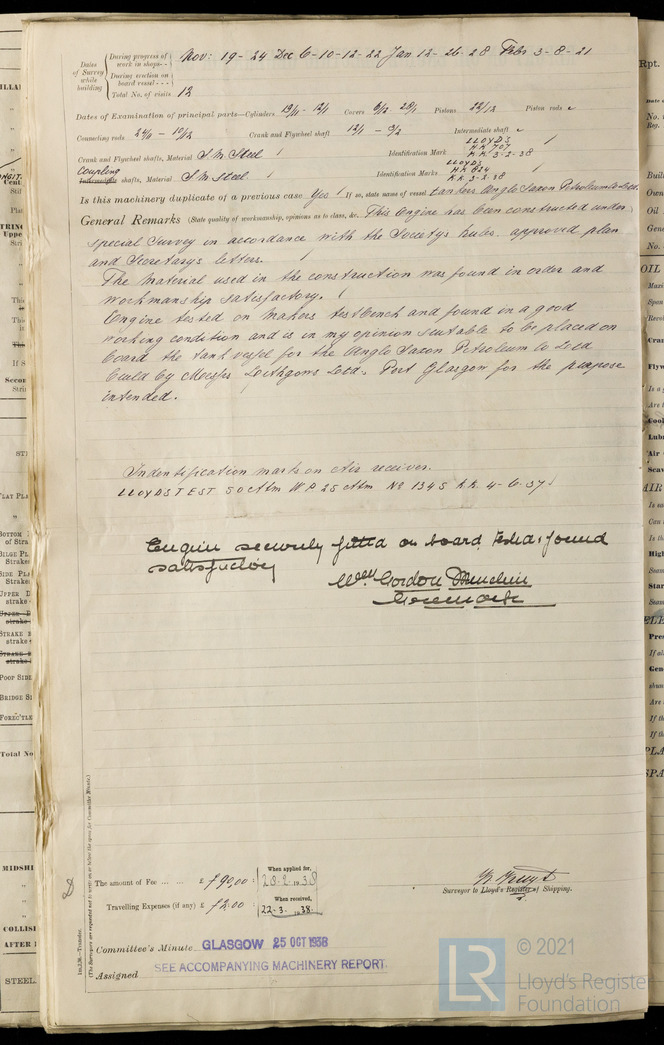 Dates of Survey while building
During progress of work in shops-- Nov: 19 - 24 Dec 6-10-12-22 Jan 12-26-28 Febr 3-8-21
During erection on board vessel---
Total No. of visits 12
Dates of Examination of principal parts—Cylinders 19/11 - 12/1 Covers 6/12 28/1 Pistons 22/13 Piston rods
Connecting rods 24/11 - 10/12 Crank and Flywheel shaft 12/1 - 3/2 Intermediate shaft
Crank and Flywheel shafts, Material S.M. Steel Identification Mark LLOYDS
K.K. 3-2-38
Coupling
Intermediate shafts, Material S.M. Steel Identification Marks LLOYDS
K.K. 3-2-38
Is this machinery duplicate of a previous case Yes If so, state name of vessel tankers Anglo Saxon Petroleum Co Ltd.
General Remarks (State quality of workmanship, opinions as to class, &c. This Engine has been constructed under
special Survey in accordance with the Society's Rules approved plan
and Secretary's letters.
The Material used in the construction was found in order and
workmanship satisfactory.
Engine tested on Makers testbench and found in a good
working condition and is in my opinion suitable to be placed on
board the tank vessel for the Anglo Saxon Petroleum Co Ltd
build by Messrs Lithgows Ltd. Port Glasgow for the purpose
intended.
Indentification marks on Air receiver.
LLOYDS TEST 50 Atm W.P. 25 Atm No 1345 K.K. 4-6-37
Engine securely fitted on board, tested & found
satisfactory
Wm Gordon
Greenock
Im.3,36.—Transfer.
(The Surveyors are requested not to write on or below the space for Committee's Minute.)
The amount of Fee ... ... £ f 90,00 : When applied for, 28-2-1938
Travelling Expenses (if any) £ f 2.00 : When received, 22-3-1938
Surveyor to Lloyd's Register of Shipping.
Committee's Minute GLASGOW 25 OCT 1938
Assigned SEE ACCOMPANYING MACHINERY REPORT.
LR
© 2021
Lloyd's Register
Foundation